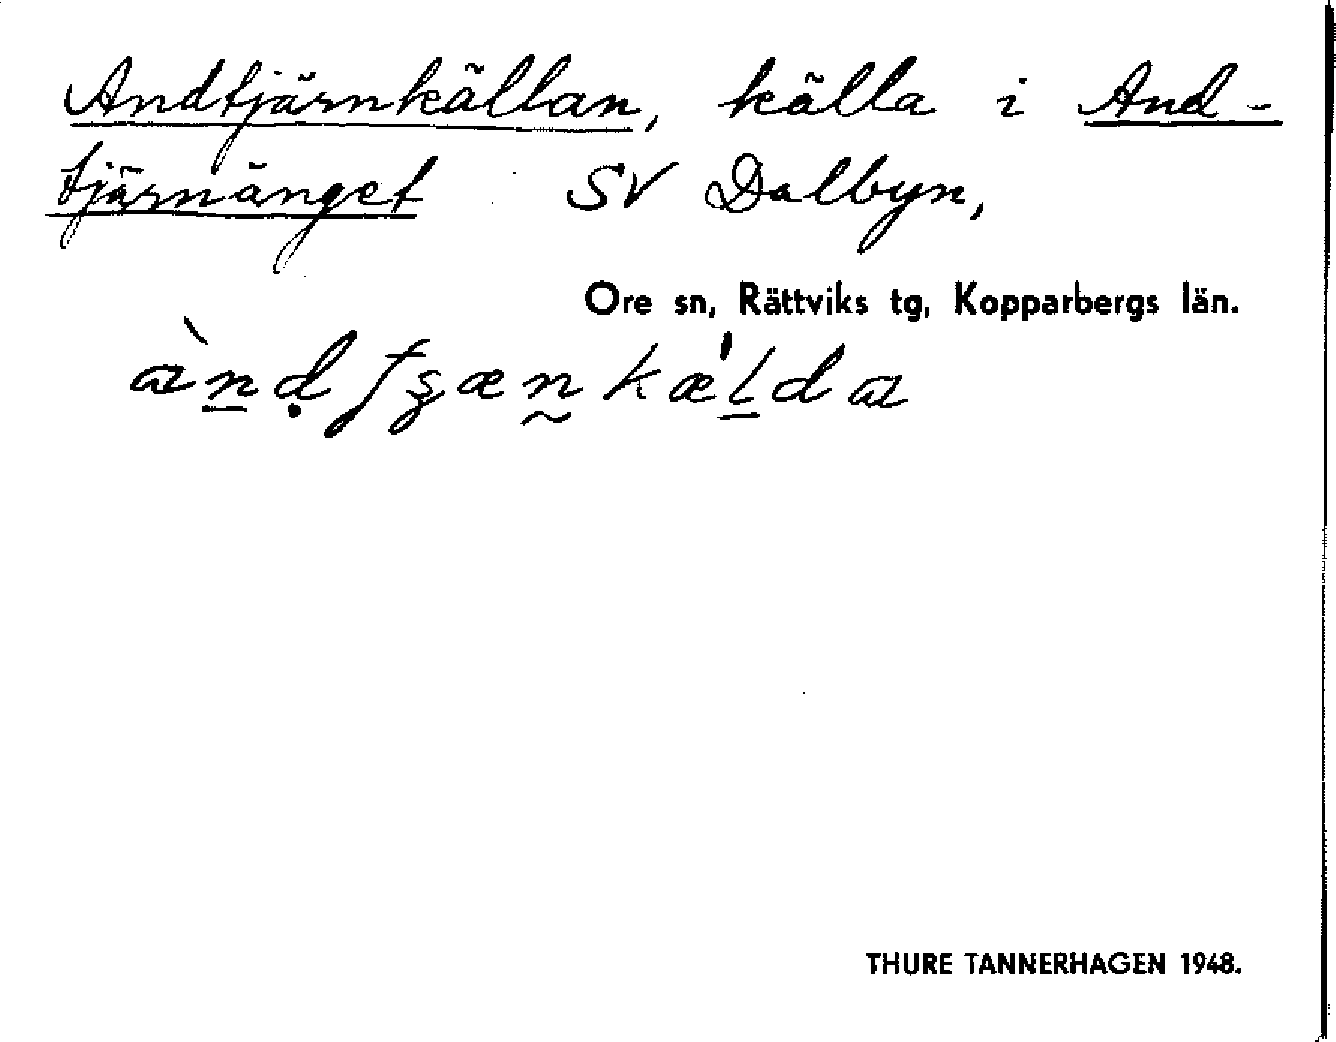 Andtjärnkällan, källa i And-
tjärnänget SV Dalbyn,
Ore sn, Rättviks tg, Kopparbergs län.
THURE TANNERHAGEN 1948.